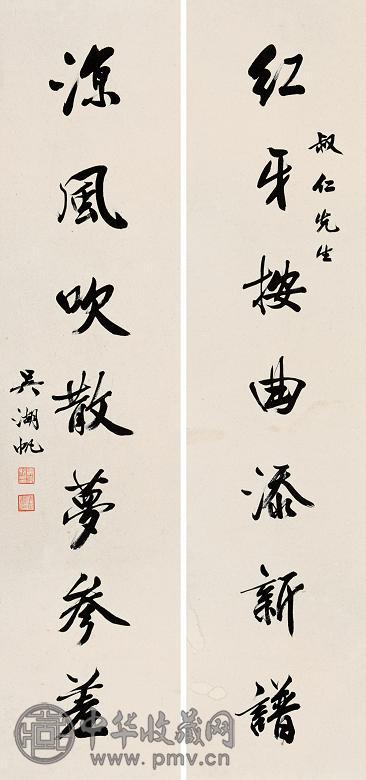 叔仁先生
红牙按曲添新譜
涼風吹散夢參差
吳湖帆
中华收藏网
www.pmv.cn